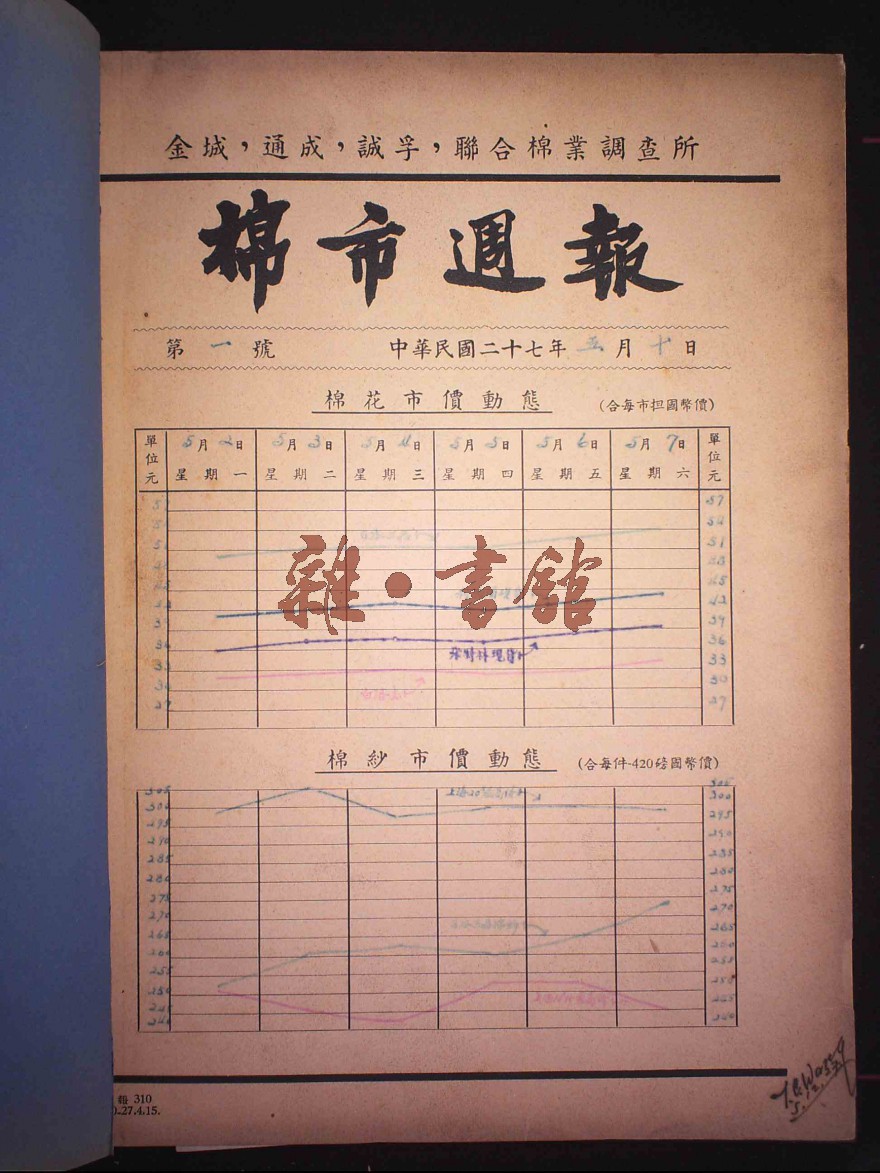 金城，通成，誠孚，聯合棉業調查所
棉市週報
第一號 中華民國二十七年五月十日
棉花市價動態 (合每市担國幣價)
單位元 5月2日 5月3日 5月4日 5月5日 5月6日 5月7日 單位元
星期一 星期二 星期三 星期四 星期五 星期六
57
54
51
48
45
42
39
36
33
30
27
雜·書館
棉紗市價動態 (合每件-420磅國幣價)
305 305
300 300
295 295
290 290
285 285
280 280
275 275
270 270
265 265
260 260
255 255
250 250
245 245
240 240
報 310
27.4.15.